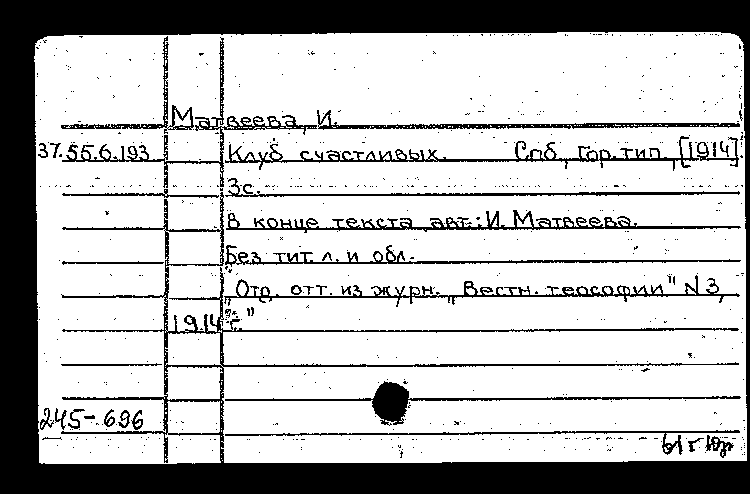 Матвеева, И.
37.55.6.193 Клуб счастливых. Спб, Гор. тип, [1914].
3с.
В конце текста авт.: И. Матвеева.
Без тит. л. и обл.
"Отд. отт. из журн. „Вестн. теософии" N 3,
1914 г."
245-696